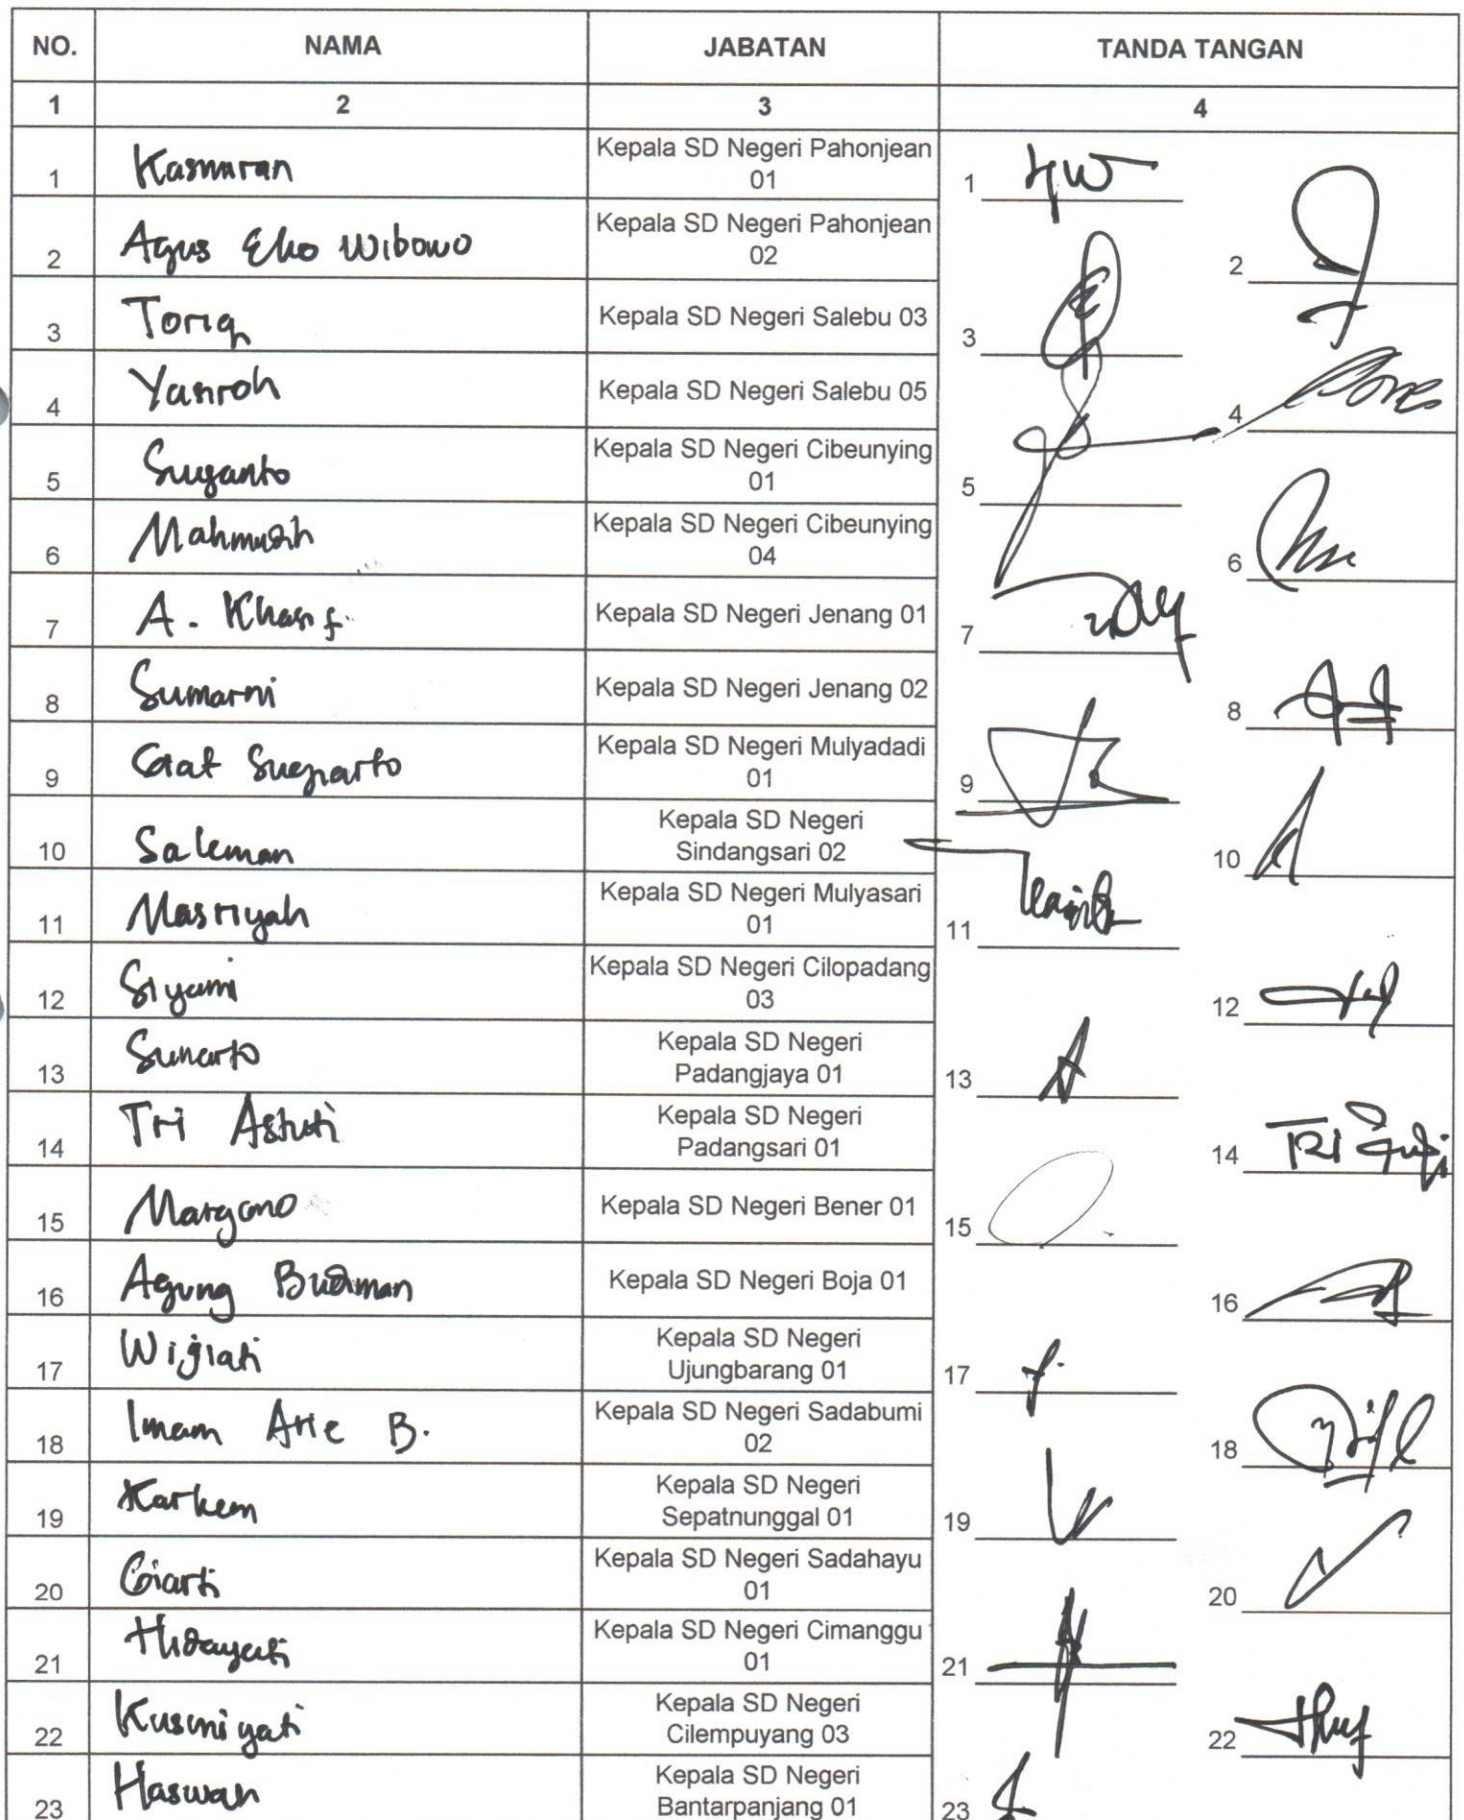 NO. NAMA JABATAN TANDA TANGAN
1 2 3 4
1 Kasmuran Kepala SD Negeri Pahonjean 1
01
2 Agus Eko Wibowo Kepala SD Negeri Pahonjean 2
02
3 Toriq Kepala SD Negeri Salebu 03 3
4 Yasiroh Kepala SD Negeri Salebu 05 4
5 Suyanto Kepala SD Negeri Cibeunying 5
01
6 Kepala SD Negeri Cibeunying 6
04
7 A. Kepala SD Negeri Jenang 01 7
8 Sumarni Kepala SD Negeri Jenang 02 8
9 Kepala SD Negeri Mulyadadi 9
01
10 Saleman Kepala SD Negeri 10
Sindangsari 02
11 Masriyah Kepala SD Negeri Mulyasari 11
01
12 Siyami Kepala SD Negeri Cilopadang 12
03
13 Sunarto Kepala SD Negeri 13
Padangjaya 01
14 Tri Astuti Kepala SD Negeri 14
Padangsari 01
15 Margono Kepala SD Negeri Bener 01 15
16 Agung Budiman Kepala SD Negeri Boja 01 16
17 Wijiati Kepala SD Negeri 17
Ujungbarang 01
18 Imam Arie B. Kepala SD Negeri Sadabumi 18
02
19 Karkem Kepala SD Negeri 19
Sepatnunggal 01
20 Giarti Kepala SD Negeri Sadahayu 20
01
21 Hidayati Kepala SD Negeri Cimanggu 21
01
22 Kusmiyati Kepala SD Negeri 22
Cilempuyang 03
23 Haswan Kepala SD Negeri 23
Bantarpanjang 01